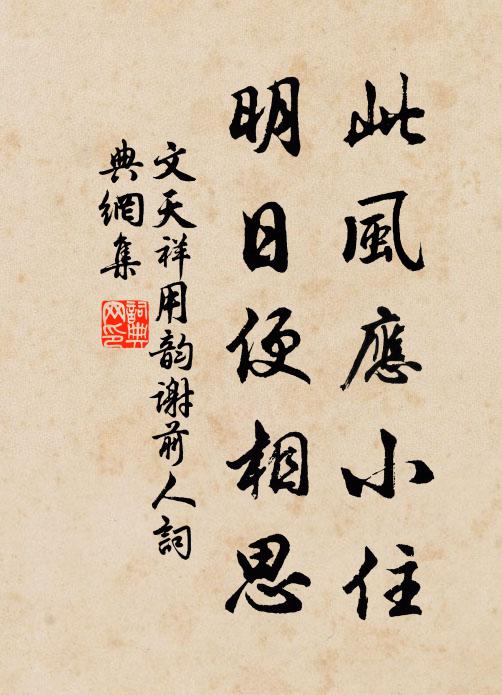 此風應小住
明日便相思
文天祥用韵謝前人詞
典網集
詞典
网印